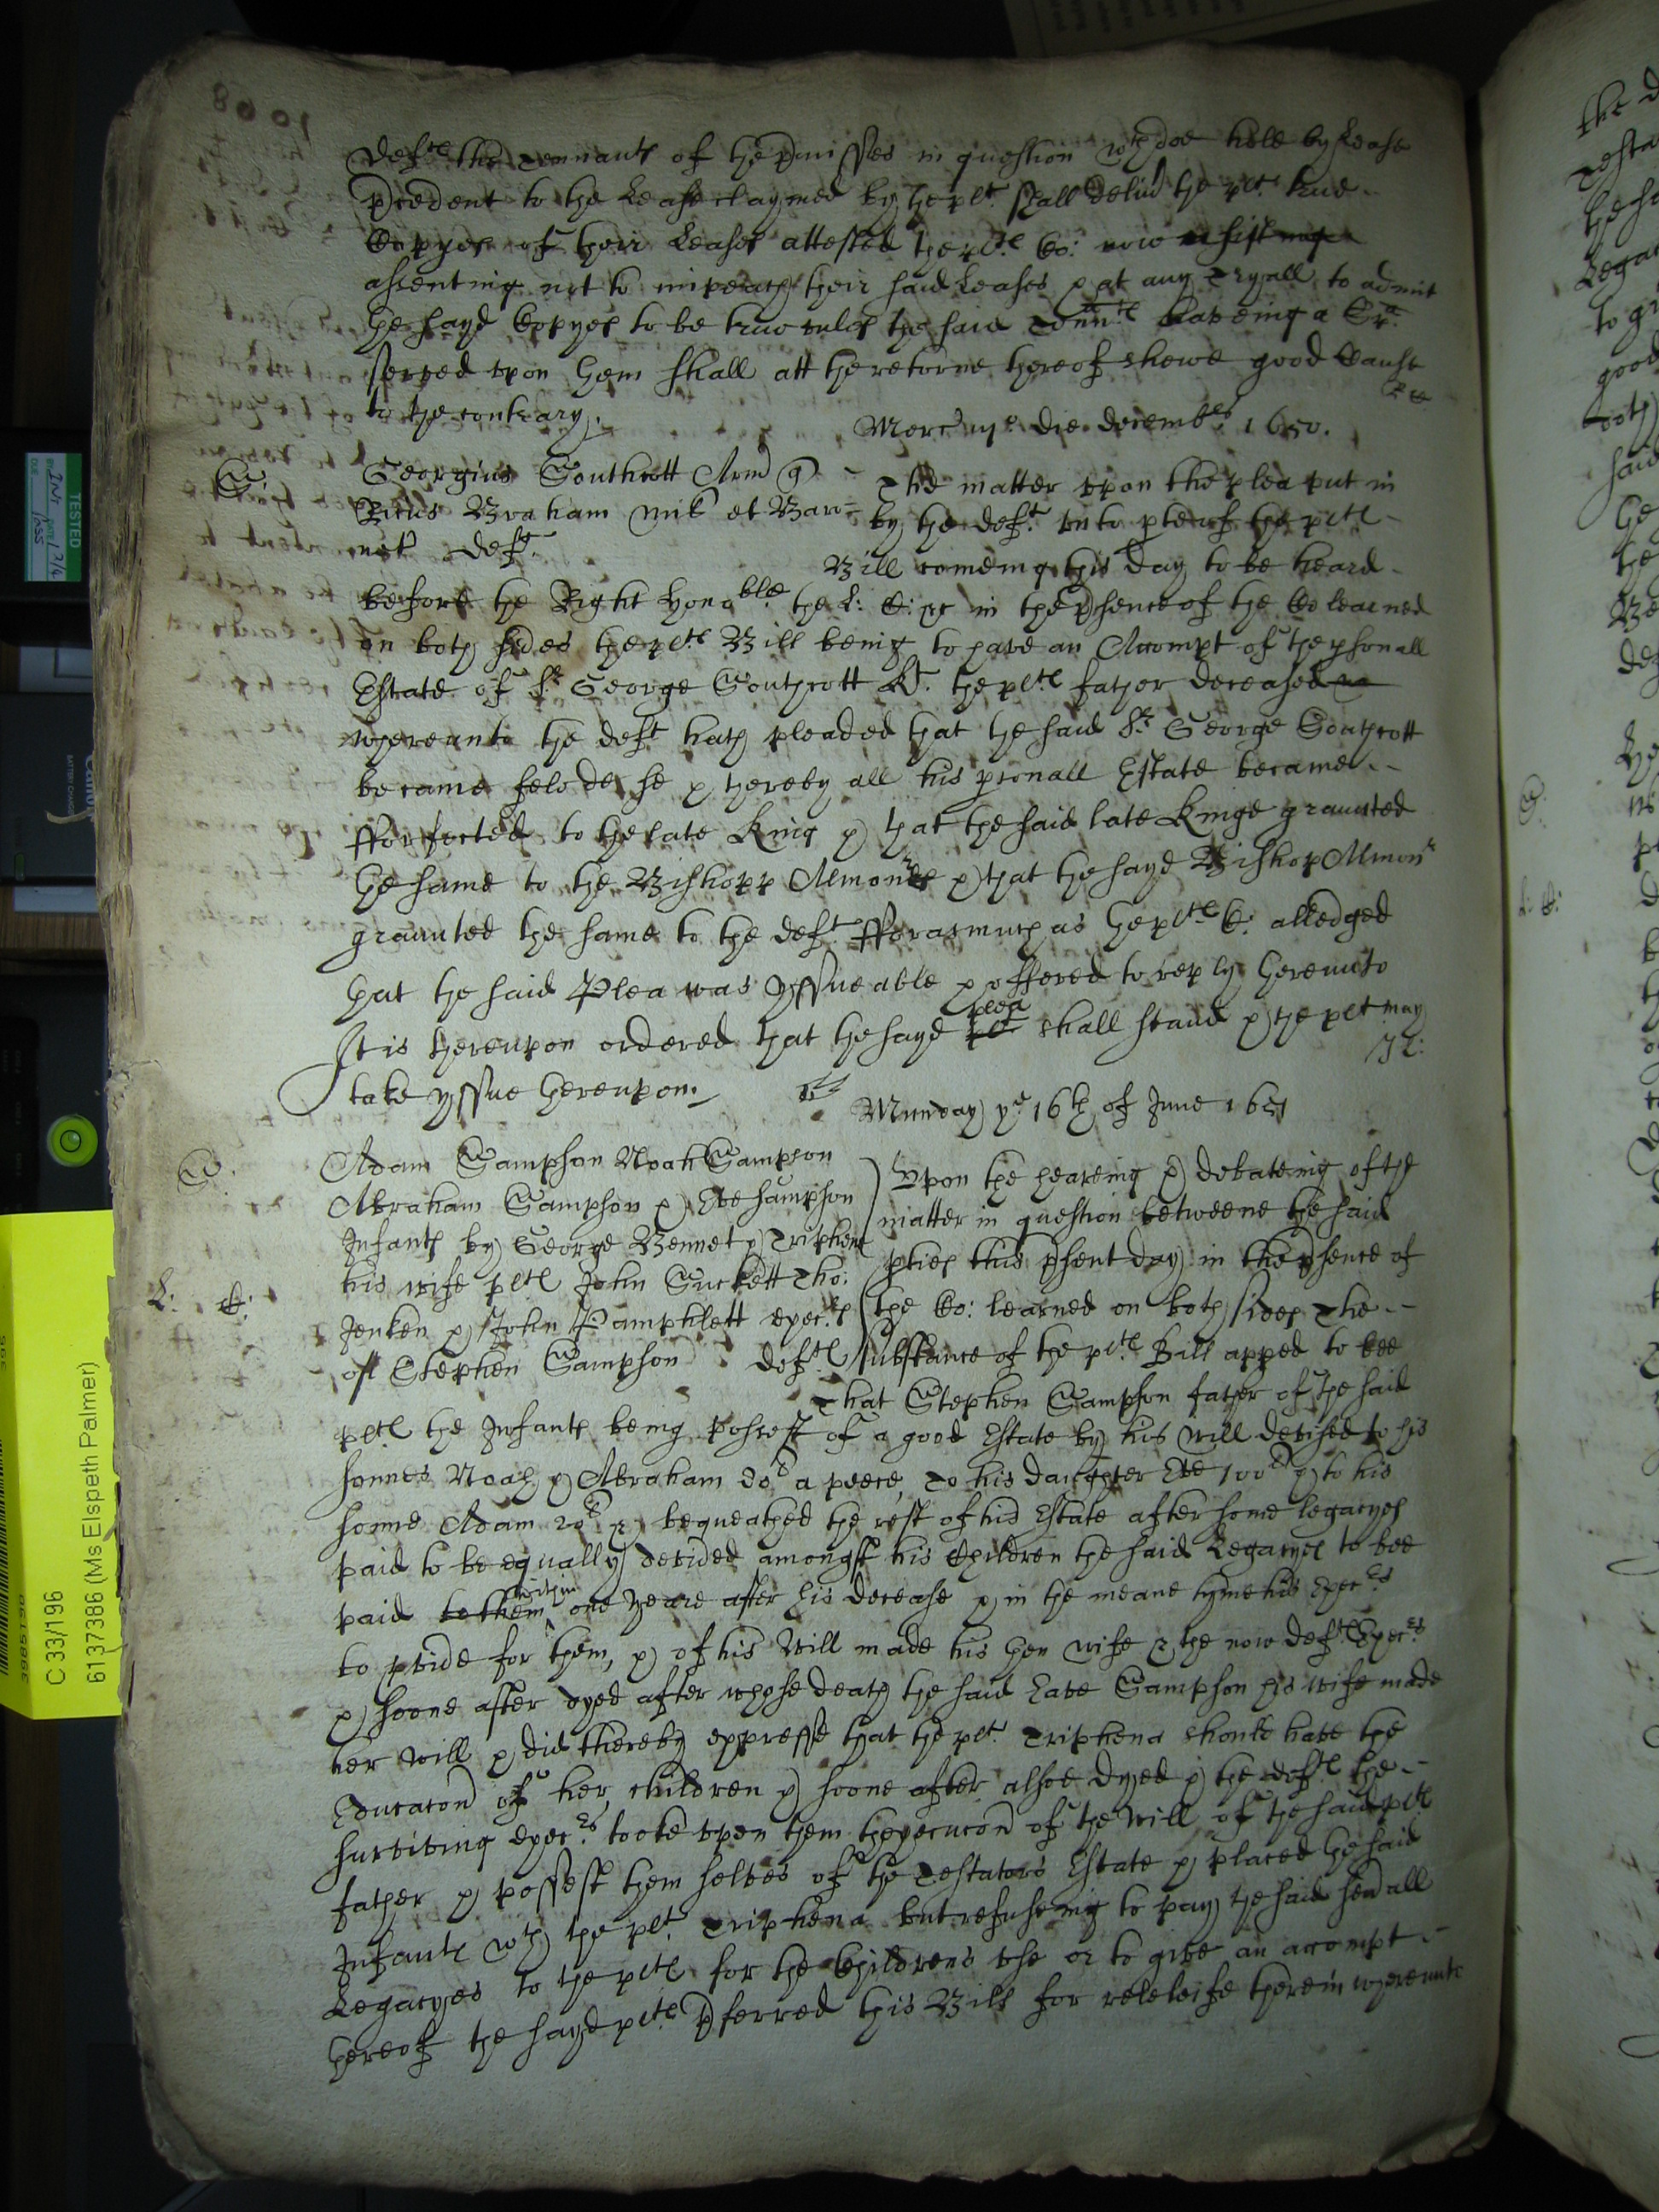 deftes the Tennants of the pmisses in question wch doe hold by Lease
pcedent to the Lease claymed by the plt. shall deliver the plt. true
Copyes of their Leases attested the pltes Co: now
assenting not to impeach their said Leases & at any Tryall to admit
the sayd Copyes to be true unles the said Tennts haveing a
served upon them shall att the retorne thereof shewe good Cause
to the contrary.
Merc' die decembr 1650.
S.
Georgius Southcott Armr q
Ricus Braham mil et Baro=
net deft.
The matter upon the plea put in
by the deft. unto pte of the pltes
Bill comeing this day to be heard
before the Right honoble the L: C: &c in the psence of the Co learned
on both sides the pltes Bill being to have an Accompt of the psonall
Estate of Sr George Southcott Kt. the pltes father deceased
whereunto the deft hath pleaded that the said Sr George Southcott
became felo de se & thereby all his psonall Estate became
fforfected to the late King & that the said late Kinge graunted
the same to the Bishopp Almoner & that the sayd Bishop Almonr
graunted the same to the deft fforasmuch as the pltes C: alledged
that the said Plea was yssueable & offered to reply thereunto
plea
It is thereupon ordered that the sayd plt shall stand & the plt may
take yssue thereupon.
Munday ye 16th of June 1651
S.
L: C:
Adam Sampson Noah Sampson
Abraham Sampson & Eve Sampson
Infants by George Bennet & Triphena
his wife pltes John Suckett Tho:
Jenken & John Pamphlett execrs
of Stephen Sampson deftes
Upon the heareing & debateing of the
matter in question betweene the said
pties this psent day in the psence of
the Co: learned on both sides The
substance of the pltes Bill apped to bee
That Stephen Sampson father of the said
pltes the Infants being possest of a good Estate by his Will devised to his
sonnes Noah & Abraham a peece, To his daughter Eve 100l & to his
sonne Adam 20l & bequeathed the rest of his Estate after some legacyes
paid to be equally devided amongst his Children the said Legacyes to bee
within
paid to them one yeare after his decease & in the meane tyme his Execrs
to pvide for them, & of his Will made his then wife & the now deftes Execrs
& soone after dyed after whose death the said Eave Sampson his wife made
her will & did thereby expresse that the plt. Triphena should have the
Educacon of her children & soone after alsoe dyed & the deftes the
surviving execrs tooke upon them thexecucon of the Will of the said pltes
father & possest them selves of the Testators Estate & placed the said
Infants wth the plt. Triphena but refuseing to pay the said sevall
Legacyes to the pltes for the Childrens use or to give an accompt
thereof the sayd pltes pferred this Bill for releife therein whereunto
C 33/196
6137386 (Ms Elspeth Palmer)
TESTED